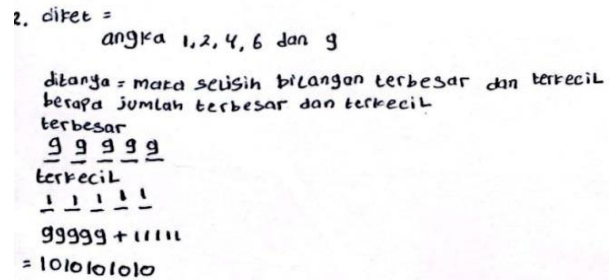 2. diket =
angka 1, 2, 4, 6 dan 9
ditanya = maka selisih bilangan terbesar dan terkecil
berapa jumlah terbesar dan terkecil
terbesar
9 9 9 9 9
terkecil
1 1 1 1 1
99999 + 11111
= 1010101010